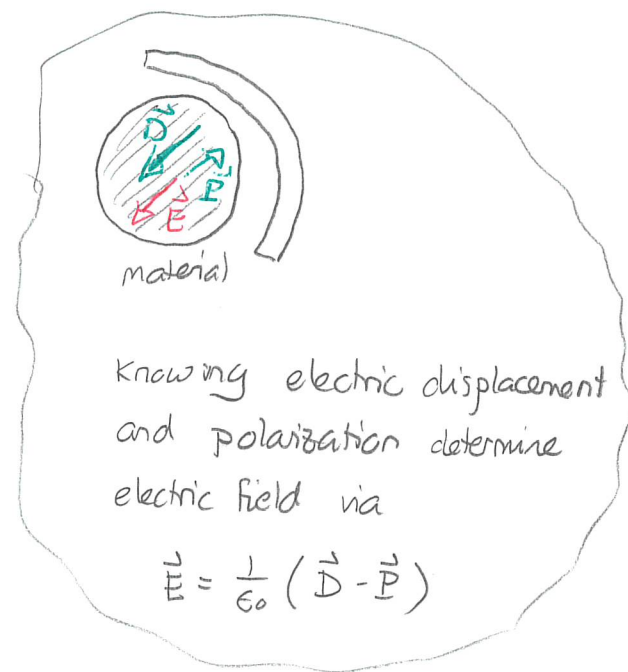 D⃗
P⃗
E⃗
material
Knowing electric displacement
and polarization determine
electric field via
E⃗ = 1/ϵ₀ ( D⃗ - P⃗ )